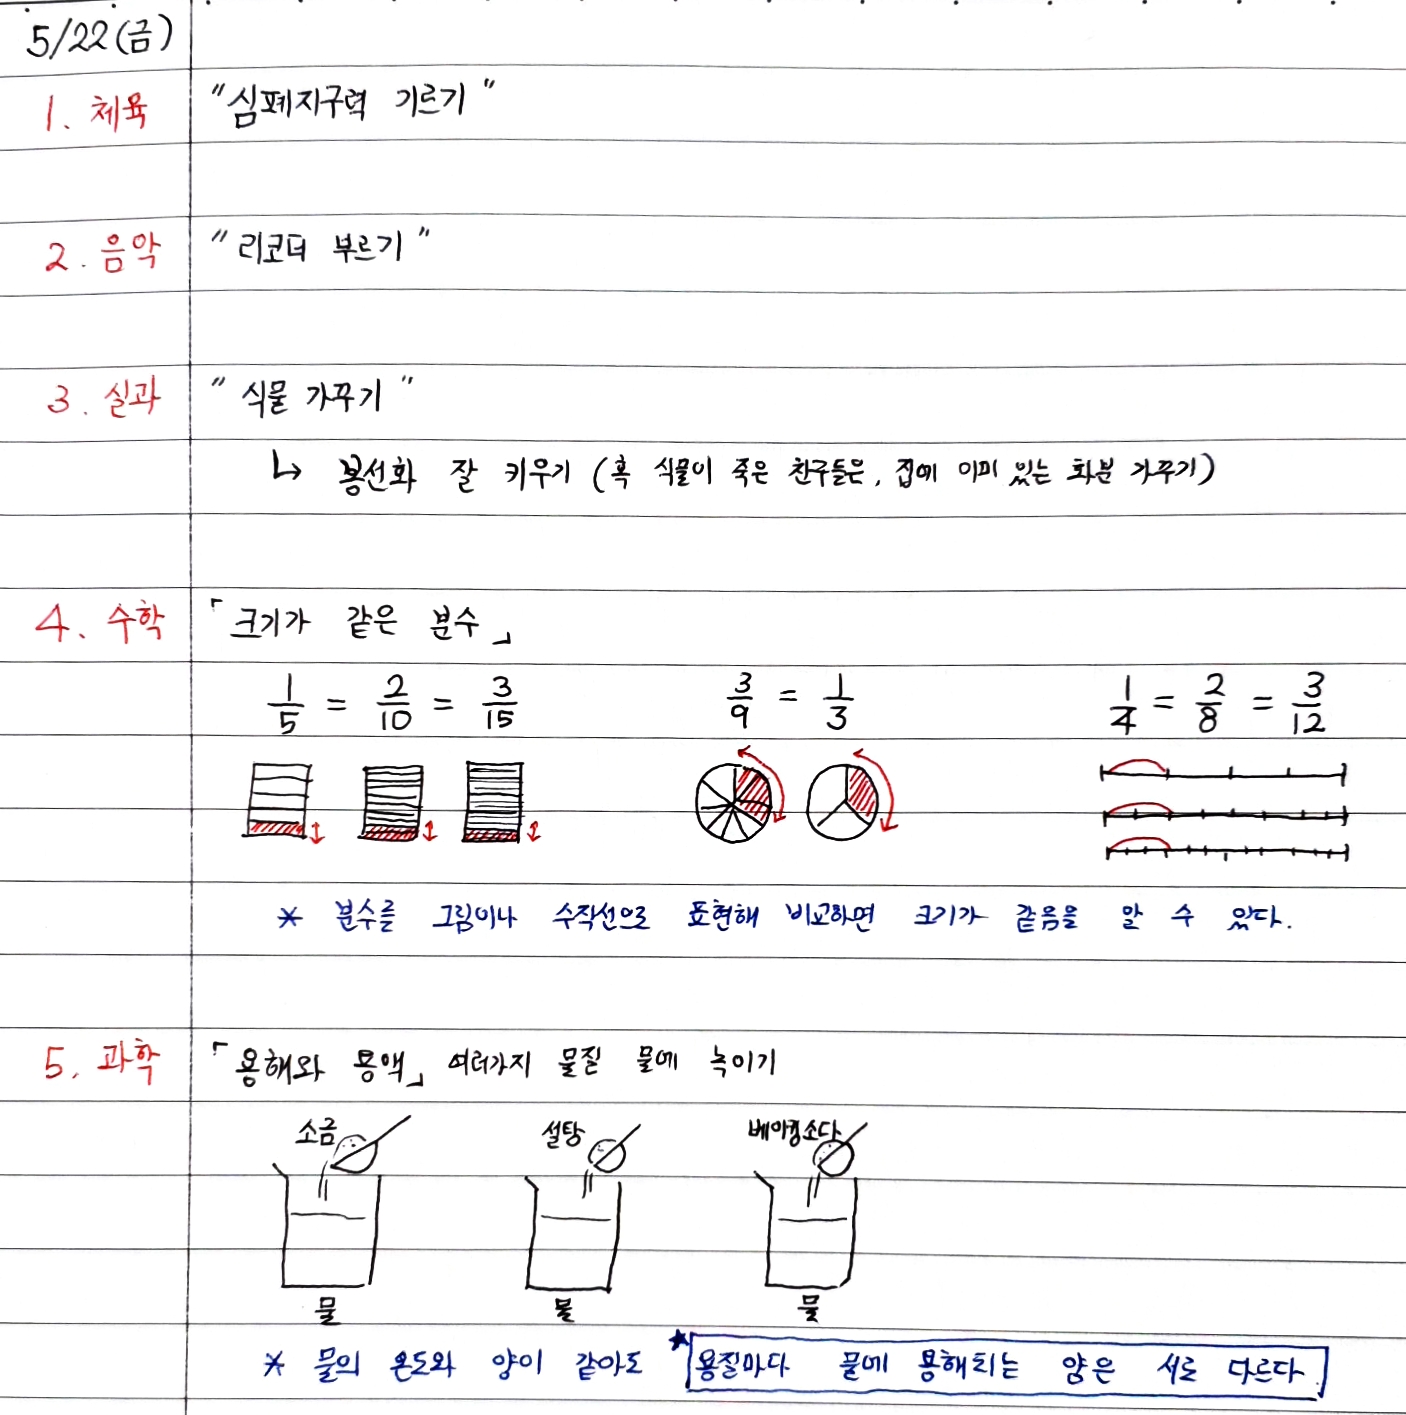 5/22(금)
1. 체육 "심폐지구력 기르기"
2. 음악 "리코더 부르기"
3. 실과 "식물 가꾸기"
↳ 봉선화 잘 키우기 (혹 식물이 죽은 친구들은, 집에 이미 있는 화분 가꾸기)
4. 수학 「크기가 같은 분수」
1/5 = 2/10 = 3/15 3/9 = 1/3 1/4 = 2/8 = 3/12
* 분수를 그림이나 수직선으로 표현해 비교하면 크기가 같음을 알 수 있다.
5. 과학 「용해와 용액」 여러가지 물질 물에 녹이기
소금 설탕 베이킹소다
물 물 물
* 물의 온도와 양이 같아도 ★용질마다 물에 용해되는 양은 서로 다르다.